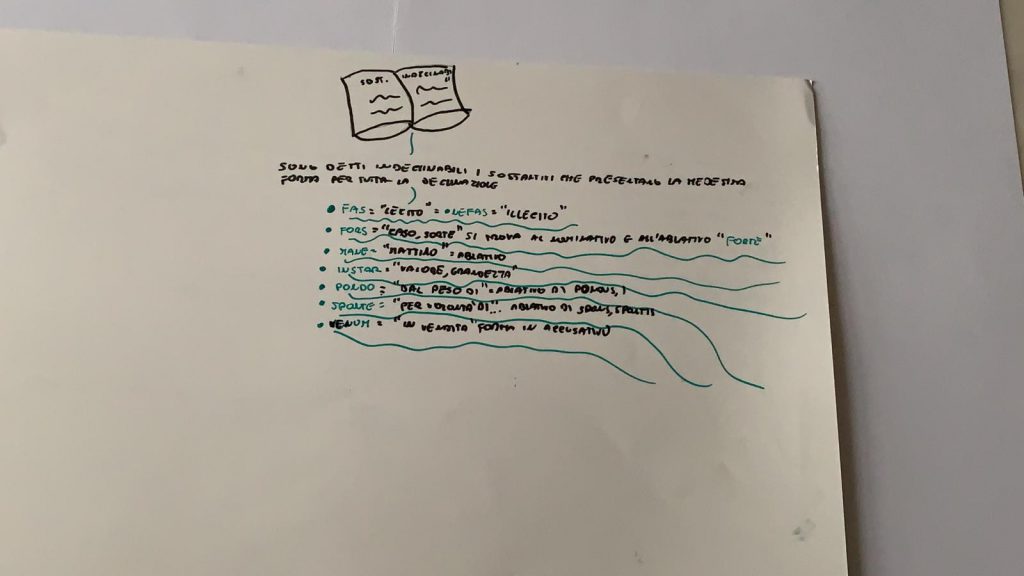 SOST. INDECLINABILI
SONO DETTI INDECLINABILI I SOSTANTIVI CHE PRESENTANO LA MEDESIMA
FORMA PER TUTTA LA DECLINAZIONE
• FAS = "LECITO" = • NEFAS = "ILLECITO"
• FORS = "CASO, SORTE" SI TROVA AL NOMINATIVO E ALL'ABLATIVO "FORTE"
• MANE = "MATTINO" = ABLATIVO
• INSTAR = "VALORE, GRANDEZZA"
• PONDO = "DAL PESO DI" = ABLATIVO DI PONDUS, I
• SPONTE = "PER VOLONTÀ DI... ABLATIVO DI SPONS, SPONTIS
• VENUM = "IN VENDITA" FORMA IN ACCUSATIVO